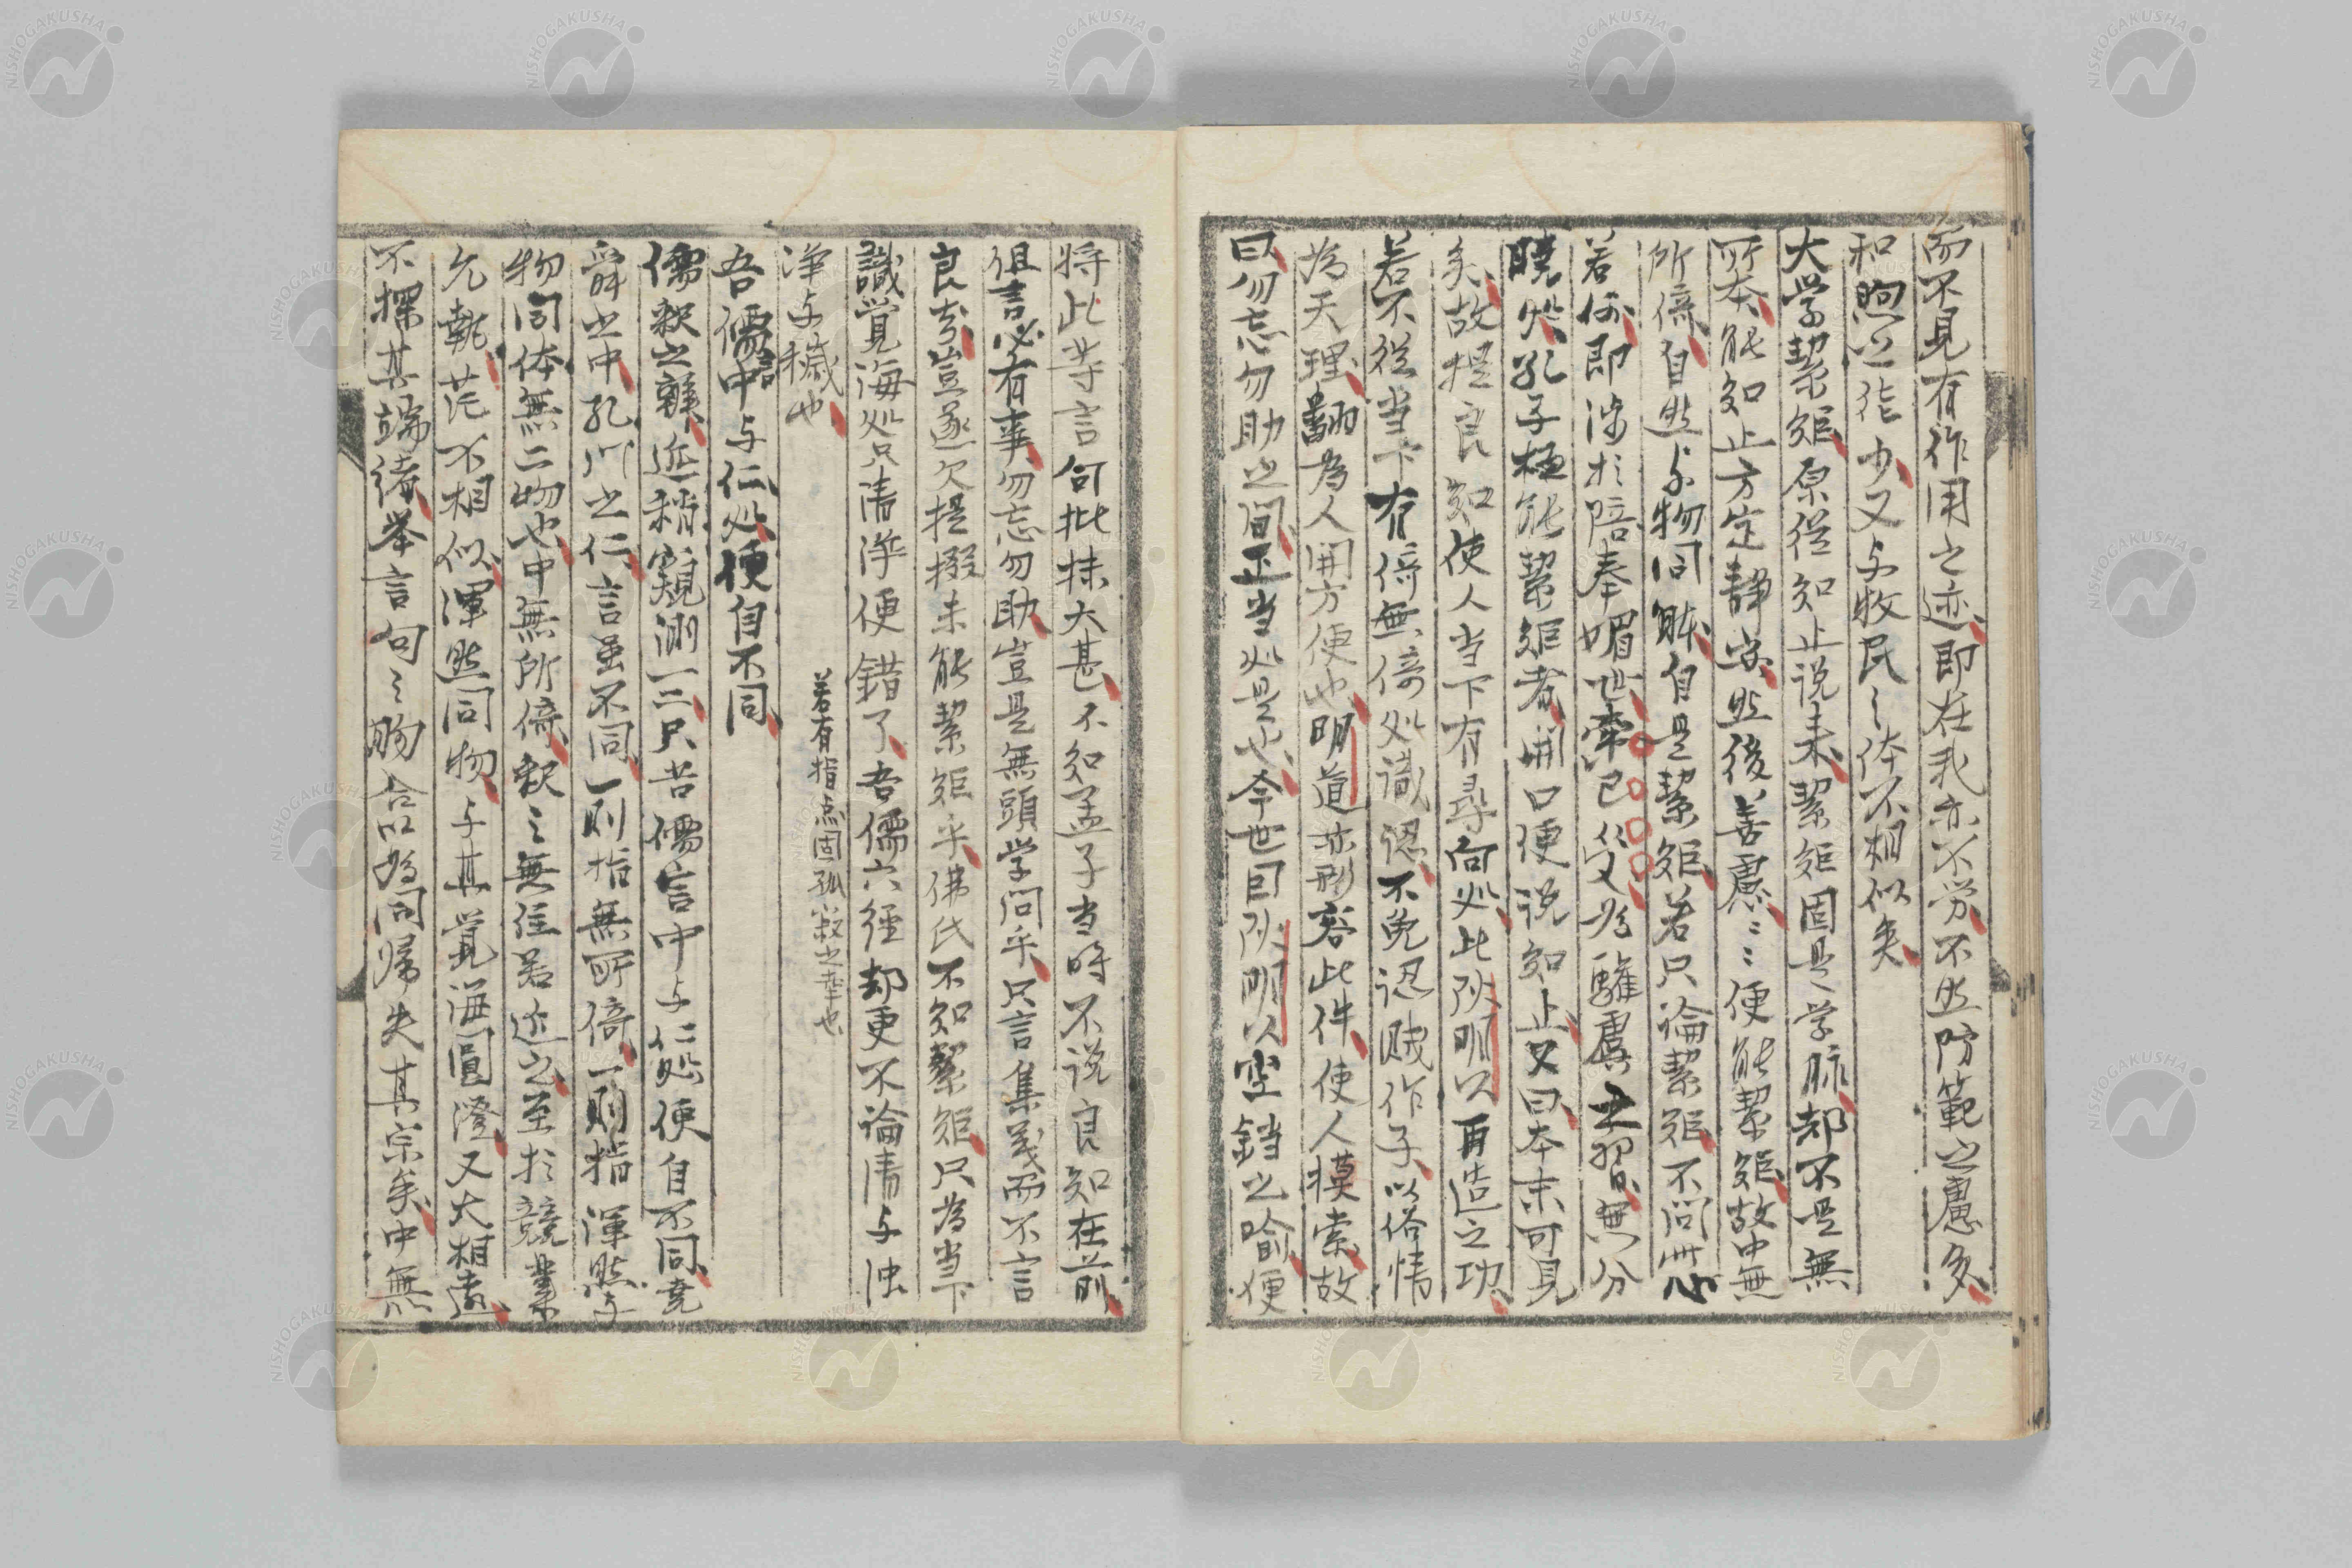 而不見有作用之迹即在我亦不労不然防範之慮多
和煦之性少又与牧民之体不相似矣
大学絜矩原従知止説来絜矩固是学脉却不是無
所本能知止方定静安然後善慮〻〻便能絜矩故中無
所倚自然与物同体自是絜矩若只論絜矩不問此心
若何即渉於陪奉媚世牽己従人為驩虞之習無分
暁処孔子極能絜矩者開口便説知止又曰本末可見
矣故提良知使人当下有尋向処此陽明以再造之功
若不従当下有倚無倚処識認不免認賊作子以俗情
為天理翻為人開方便也明道亦形容此件使人摸索故
曰勿忘勿助之間正当処是也今世目陽明以空鐺之喻便
将此等言句批抹大甚不知孟子当時不説良知在前
但言必有事勿忘勿助豈是無頭学問乎只言集義而不言
良知豈遂欠提掇未能絜矩乎佛氏不知絜矩只為当下
識覚海処只清浄便錯了吾儒六経却更不論清与浊
浄与穢也
若有指点固孤寂之事也
吾儒言中与仁処便自不同
儒釈之辨近稍窺測一二只苦儒言中与仁処便自不同尭
舜之中孔門之仁言雖不同一則指無所倚一則指渾然与
物同体無二物也中無所倚釈之無住若近之至於競業
允執茫不相似渾然同物与其覚海圓澄又大相遠
不探其端緒挙言句〻脗合以為同帰失其宗矣中無
NISHOGAKUSHA